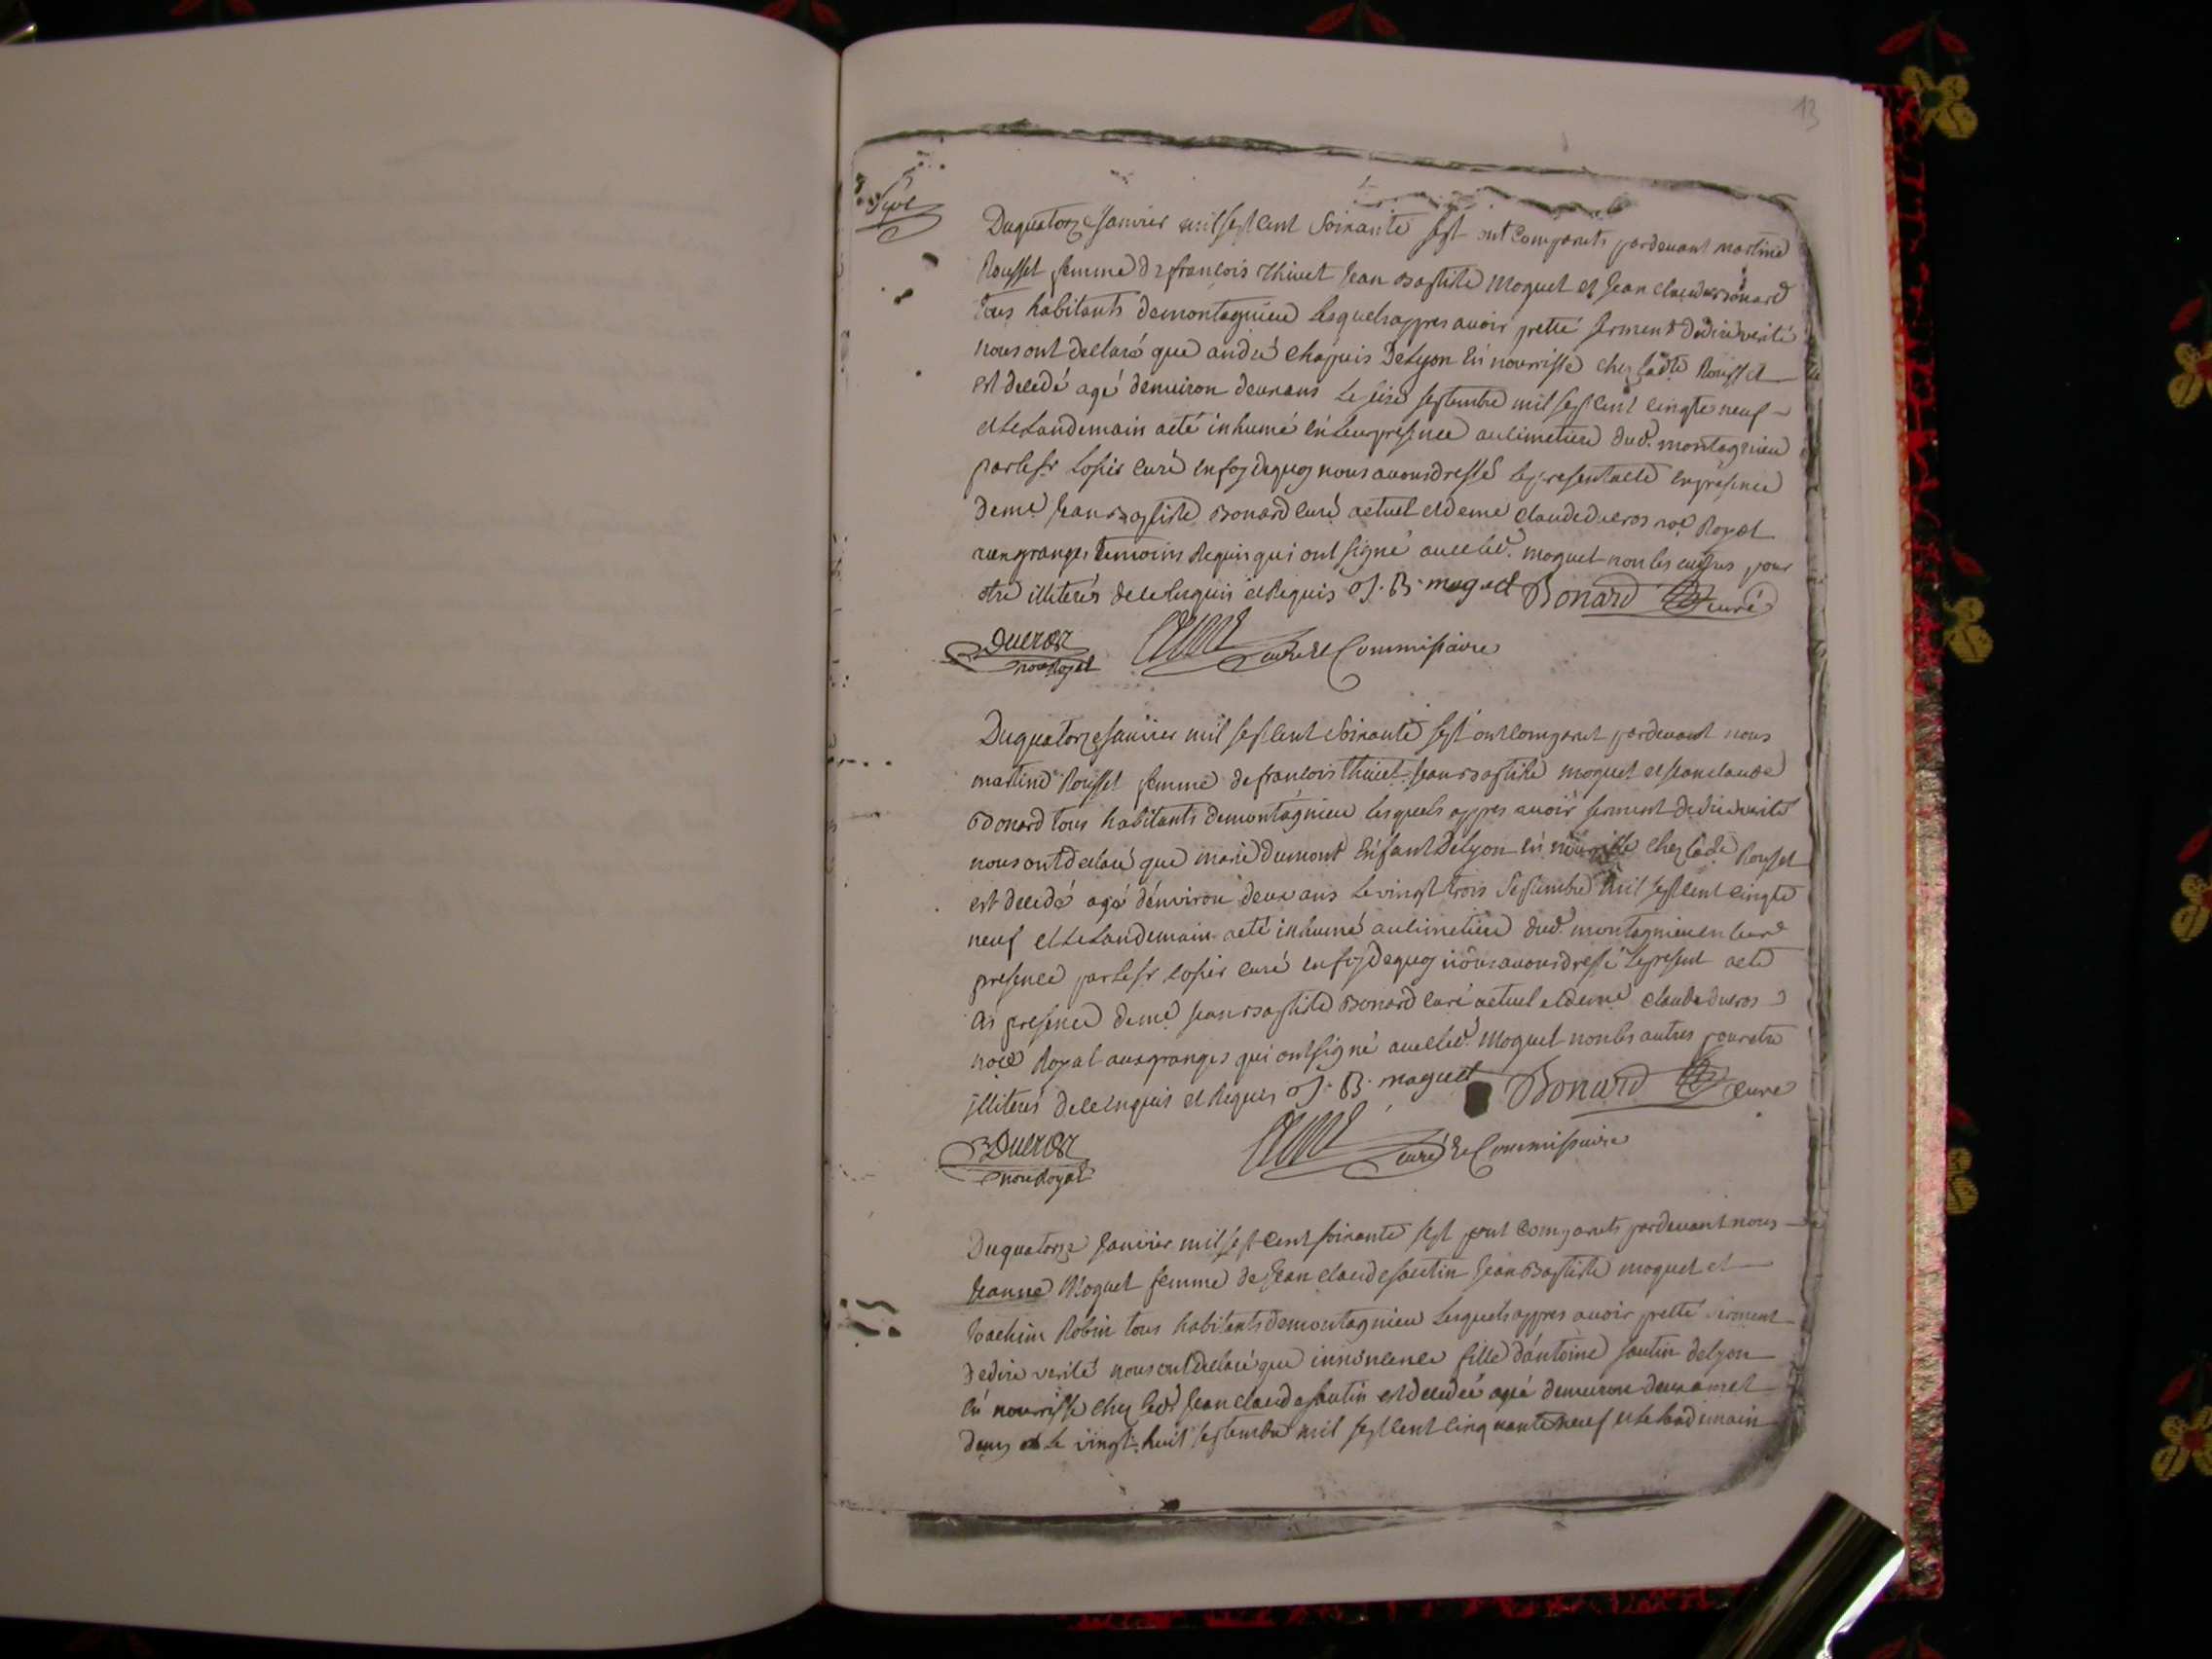 13
Duquatorze Janvier mil sept cent Soixante sept ont Comparuts pardevant martine
Rousset femme de francois Thivet Jean Baptiste Moquet et Jean claude Bonard
tous habitants demontagnieu Lesquels appres avoir pretté serment dedire verité
nous ont declaré que andré chapuis DeLyon En nourrisse chez ladte Rousset
est decedé agé denviron deux ans Le seize septembre mil sept cent cinqte neuf
et Le Landemain a eté inhumé en Leur presence au cimetiere dud. montagnieu
par le sr curé en foy dequoy nous avons dressé le present acte en presence
deme Jean Baptiste Bonard curé actuel et deme claude ducros noe Royal
aux granges temoins Requis qui ont signé avec led. moquet non les autres pour
etre illiterés de ce Enquis et Requis J. B. moquet Bonard curé
Ducros curé et Commissaire
noe Royal
Duquatorze Janvier mil sept cent Soixante sept ont comparut pardevant nous
martine Rousset femme de francois thivet Jean Baptiste moquet et Jean claude
Bonard tous habitants demontagnieu lesquels appres avoir serment de dire verité
nous ont declaré que marie dumont Enfant DeLyon en nourrisse chez lade Rousset
est decedé agé d'environ deux ans Le vingt trois Septembre mil sept cent cinqte
neuf et Le Landemain a eté inhumé au cimetiere dud. montagnieu en leur
presence par Le sr curé en foy dequoy nous avons dressé Le present acte
en presence deme Jean Baptiste Bonard curé actuel et deme claude ducros
noe Royal aux granges qui ont signé avec led. Moquet non les autres pour etre
illiterés de ce enquis et Requis J. B. moquet Bonard Curé
Ducros curé et Commissaire
noe Royal
Duquatorze Janvier mil sept Cent soixante sept ont comparuts pardevant nous
Jeanne Moquet femme de Jean claude Jantin Jean Baptiste moquet et
Joachim Robin tous habitants demontagnieu Lesquels appres avoir pretté serment
dedire verité nous ont declaré que fille d'antoine Jantin delyon
En nourrisse chez led. Jean claude Jantin est decedeé ageé denviron deux an et
demy et Le vingt huit septembre mil sept cent cinquante neuf et Le landemain